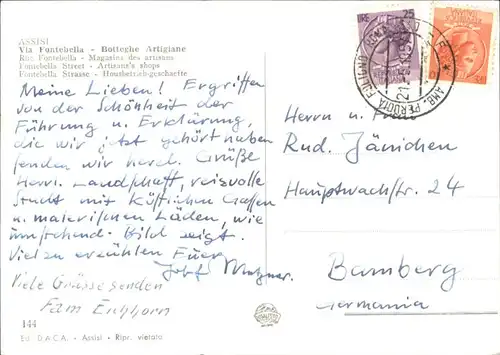 ASSISI
Via Fontebella - Botteghe Artigiane
Rue Fontebella - Magasins des artisans
Fontebella Street - Artisans's shops
Fontebella Strasse - Hausbetrieb-geschaefte
Meine Lieben! Ergriffen
von der Schönheit der
Führung u. Erklärung,
die wir jetzt gehört haben
senden wir herzl. Grüße
Herrl. Landschaft, reizvolle
Stadt mit köstlichen Gassen
u. malerischen Läden, wie
umstehend. Bild zeigt.
Viel zu erzählen Euer
Josef
Viele Grüsse senden
Fam Eichhorn
LIRE 25
AMB. PERUGIA
FOLIGNO
Herrn u. Frau
Rud. Jänichen
Hauptwachstr. 24
Bamberg
Germania
144
Ed. D.A.C.A. - Assisi - Ripr. vietata